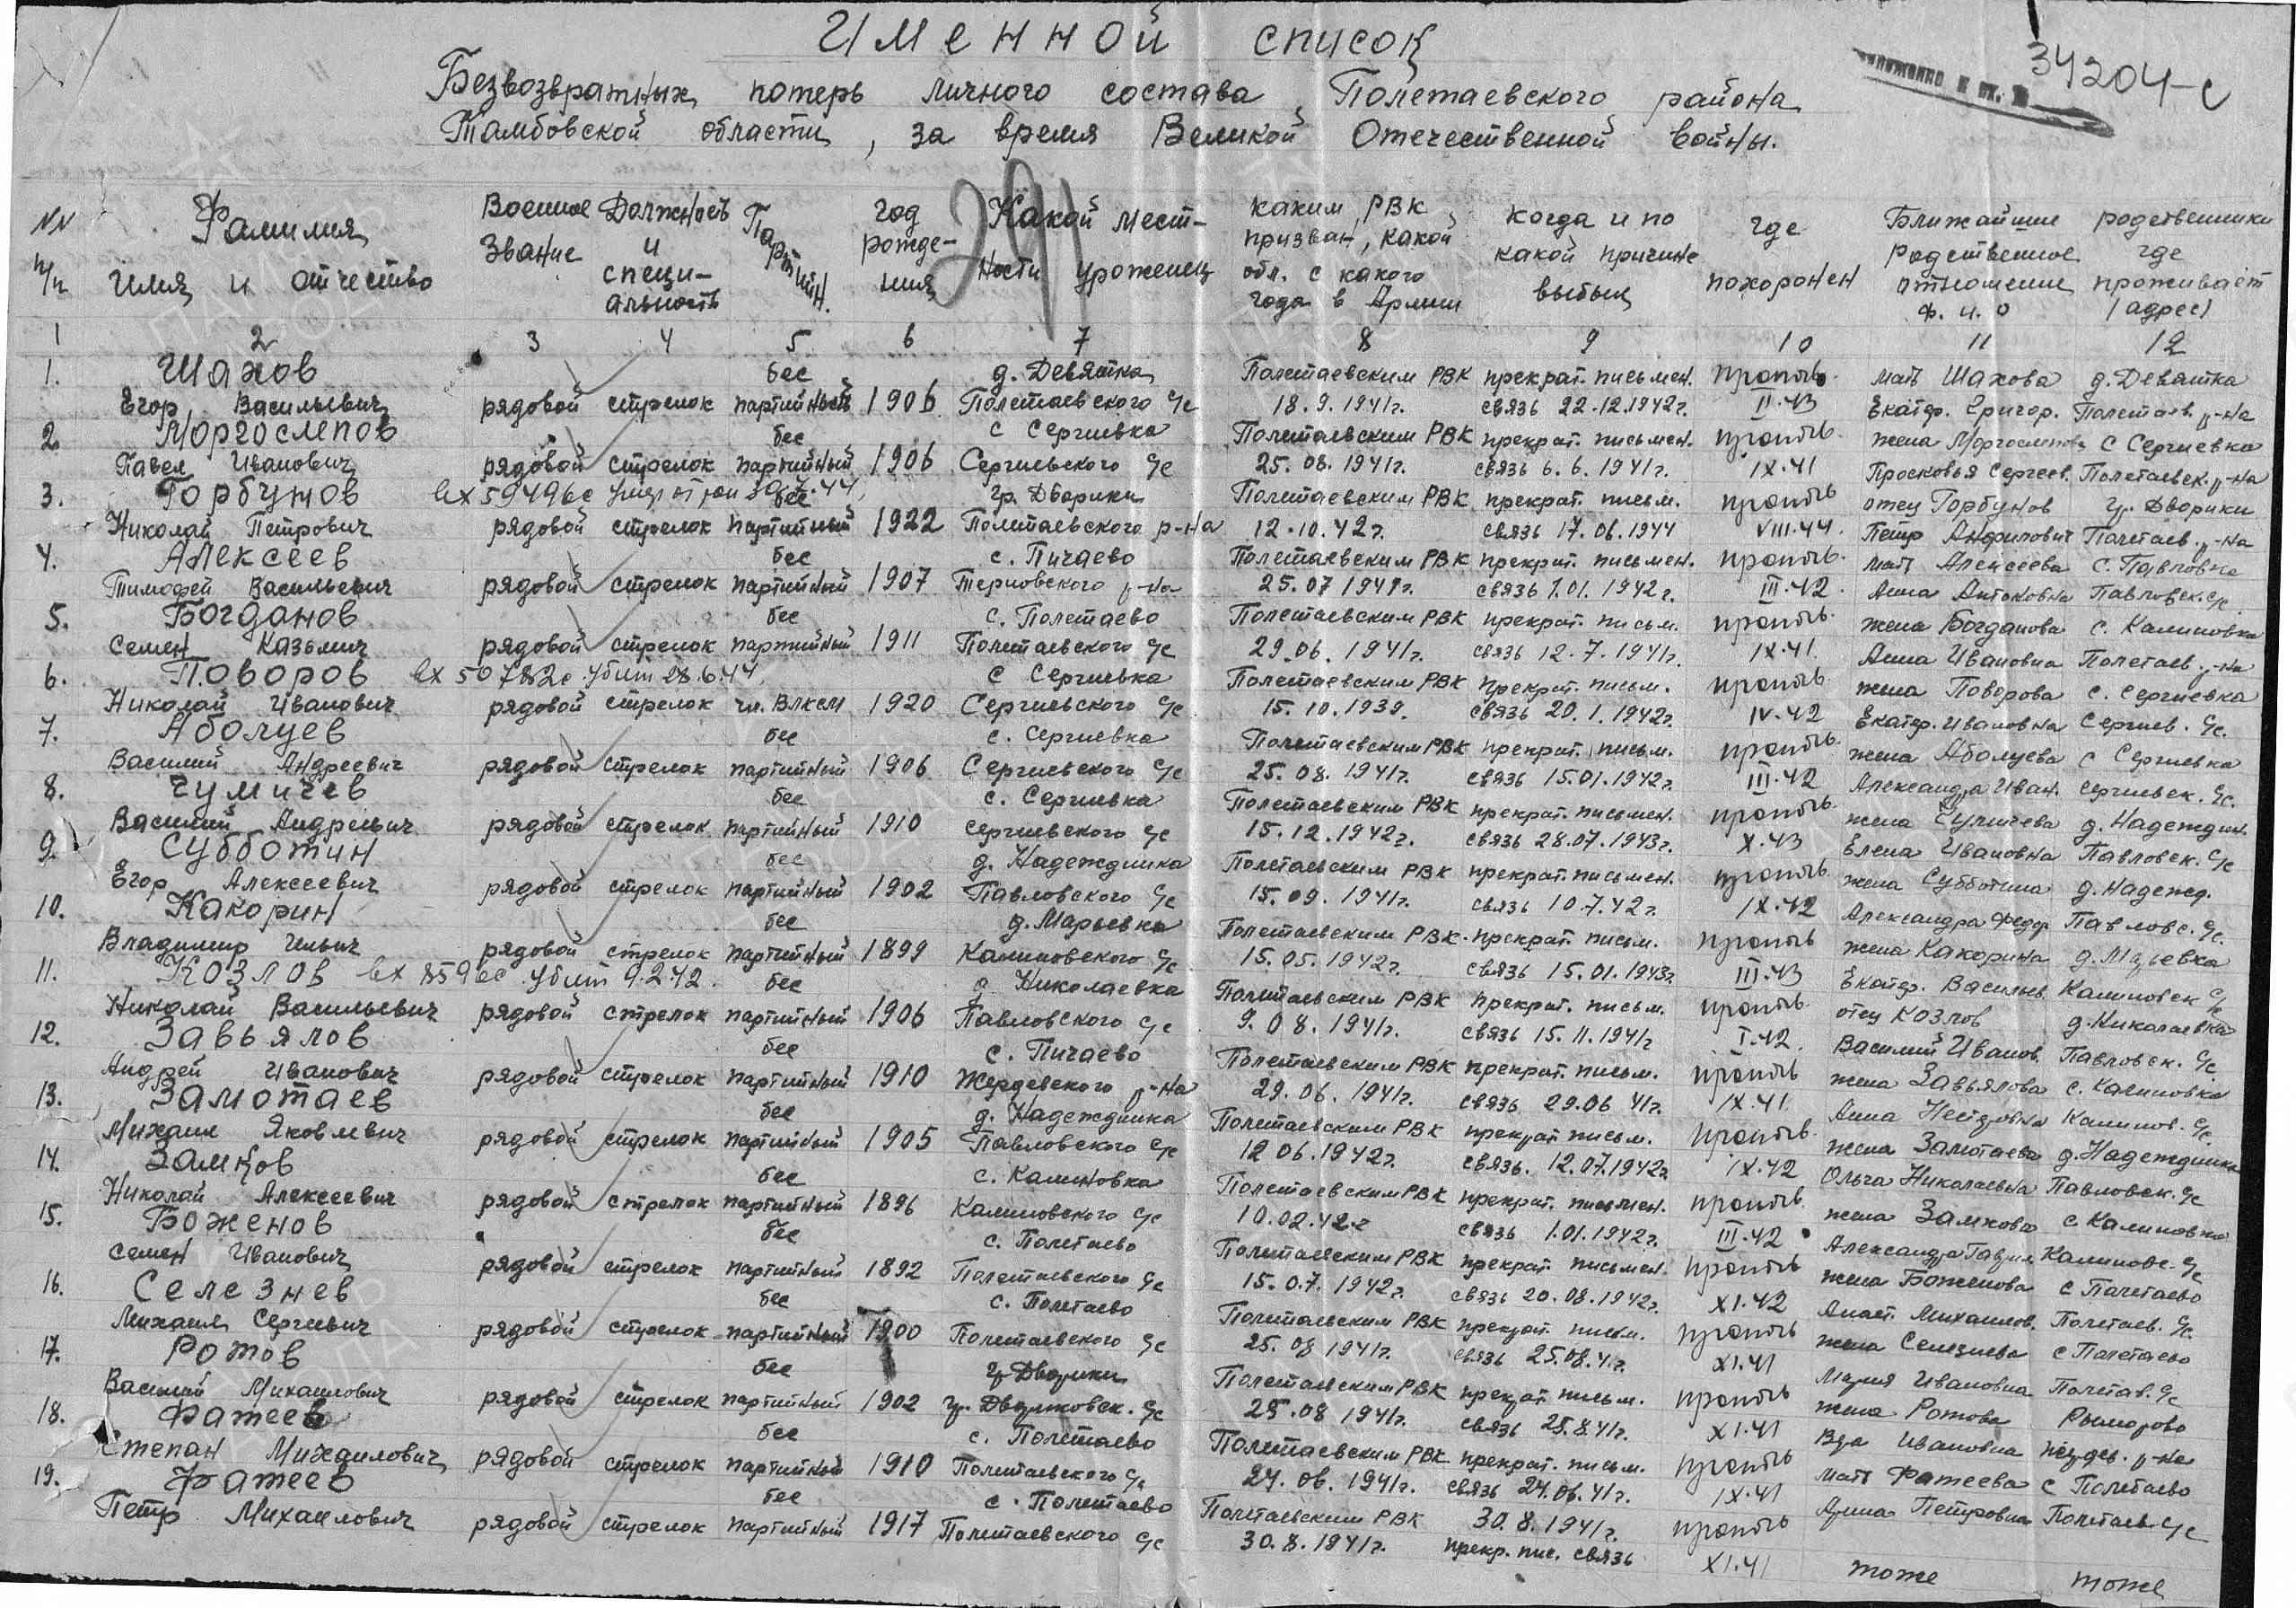 Именной список
34204-с
Безвозвратных потерь личного состава Полетаевского района
Тамбовской области, за время Великой Отечественной войны.
291
NN п/п
Фамилия имя и отчество
Военное звание
Должность и специальность
Партийн.
год рождения
Какой местности уроженец
каким РВК призван, какой обл. с какого года в Армии
когда и по какой причине выбыл
где похоронен
Ближайшие родственники
Родственное отношение ф. и. о
где проживает (адрес)
1 2 3 4 5 6 7 8 9 10 11 12
1. Шахов бес д. Девятка Полетаевским РВК прекрат. письмен. пропавш. мать Шахова д. Девятка
Егор Васильевич рядовой стрелок партийность 1906 Полетаевского с/с 18.9.1941г. связь 22.12.1942г. II.43 Екатер. Григор. Полетаев. р-на
2. Моргослепов бес с Сергиевка Полетаевским РВК прекрат. письмен. жена Моргослепова с Сергиевка
Павел Иванович рядовой стрелок партийный 1906 Сергиевского с/с 25.08.1941г. связь 6.6.1941г. IX.41 Просковья Сергеев. Полетаевск. р-на
3. Горбунов вх 59496с бес гр. Дворики Полетаевским РВК прекрат. письм. отец Горбунов гр. Дворики
Николай Петрович рядовой стрелок партийный 1922 Полетаевского р-на 12.10.42г. связь 17.06.1944 VIII.44. Петр Полетаев. р-на
4. Алексеев бес с. Пичаево Полетаевским РВК прекрат. письмен. мать Алексеева с. Павловка
Тимофей Васильевич рядовой стрелок партийный 1907 Терновского р-на 25.07 1941г. связь 1.01.1942г. III.42. Анна Антоновна Павловск. с/с
5. Богданов бес с. Полетаево Полетаевским РВК прекрат. письм. жена Богданова с. Калиновка
Семен Казьмич рядовой стрелок партийный 1911 Полетаевского с/с 29.06.1941г. связь 12.7.1941г. IX.41. Анна Ивановна Полетаев. р-на
6. Поворов вх 50782с убит 28.6.44 с Сергиевка Полетаевским РВК прекрат. письм. жена Поворова с. Сергиевка
Николай Иванович рядовой стрелок чл. Влксм 1920 Сергиевского с/с 15.10.1939. связь 20.1.1942г. IV.42 Екатер. Ивановна Сергиев. с/с.
7. Аболуев бес с. Сергиевка Полетаевским РВК прекрат. письм. жена Аболуева с Сергиевка
Василий Андреевич рядовой стрелок партийный 1906 Сергиевского с/с 25.08.1941г. связь 15.01.1942г. III.42 Александра Иван. Сергиевск. с/с.
8. Чумичев бес с. Сергиевка Полетаевским РВК прекрат. письмен. жена Чумичева д. Надеждин.
Василий Андреевич рядовой стрелок партийный 1910 Сергиевского с/с 15.12.1942г. связь 28.07.1943г. X.43 Елена Ивановна Павловск. с/с
9. Субботин бес д. Надеждинка Полетаевским РВК прекрат. письмен. жена Субботина д. Надежд.
Егор Алексеевич рядовой стрелок партийный 1902 Павловского с/с 15.09.1941г. связь 10.7.42г. IX.42 Александра Федор Павловс. с/с.
10. Какорин бес д. Марьевка Полетаевским РВК. прекрат. письм. жена Какорина д. Марьевка
Владимир Ильич рядовой стрелок партийный 1899 Калиновского с/с 15.05.1942г. связь 15.01.1943г. III.43 Екатер. Васильев. Калиновск с/с
11. Козлов вх 859 бс. убит 9.2.42. бес д Николаевка Полетаевским РВК прекрат. письм. отец Козлов д. Николаевка
Николай Васильевич рядовой стрелок партийный 1906 Павловского с/с 9.08.1941г. связь 15.11.1941г I.42. Василий Иванов. Павловск. с/с
12. Завьялов бес с. Пичаево Полетаевским РВК прекрат. письм. жена Завьялова с. Калиновка
Андрей Иванович рядовой стрелок партийный 1910 Жердевского р-на 29.06.1941г. связь 29.06 41г. IX.41. Анна Калинов. с/с.
13. Замотаев бес д. Надеждинка Полетаевским РВК прекрат письм. жена Замотаева д. Надеждинка
Михаил Яковлевич рядовой стрелок партийный 1905 Павловского с/с 12 06.1942г. связь. 12.07.1942г IX.42 Ольга Николаевна Павловск. с/с
14. Замков бес с. Калиновка Полетаевским РВК прекрат. письмен. жена Замкова с Калиновка
Николай Алексеевич рядовой стрелок партийный 1896 Калиновского с/с 10.02.42г связь 1.01.1942г. III.42 Александра Гаврил. Калиновс. с/с
15. Боженов бес с. Полетаево Полетаевским РВК прекрат. письмен. жена Боженова с Полетаево
Семен Иванович рядовой стрелок партийный 1892 Полетаевского с/с 15.07.1942г. связь 20.08.1942г. XI.42 Анаст. Михайлов. Полетаев. с/с.
16. Селезнев бес с. Полетаево Полетаевским РВК прекрат. письм. жена Селезнева с Полетаево
Михаил Сергеевич рядовой стрелок партийный 1900 Полетаевского с/с 25.08 1941г. связь 25.08.41г. XI.41 Мария Ивановна Полетав. с/с
17. Ротов бес гр Дворики Полетаевским РВК прекрат. письм. жена Ротова
Василий Михайлович рядовой стрелок партийный 1902 гр. Двориковск. с/с 25.08 1941г. связь 25.8.41г. XI.41 Вера Ивановна р-на
18. Фатеев бес с. Полетаево Полетаевским РВК прекрат. письм. мать Фатеева с Полетаево
Степан Михайлович рядовой стрелок партийный 1910 Полетаевского с/с 24.06.1941г. связь 24.06.41г. IX.41 Арина Петровна Полетаев с/с
19. Фатеев бес с. Полетаево Полетаевским РВК 30.8.1941г. тоже тоже
Петр Михайлович рядовой стрелок партийный 1917 Полетаевского с/с 30.8.1941г. прекр. пис. связь XI.41